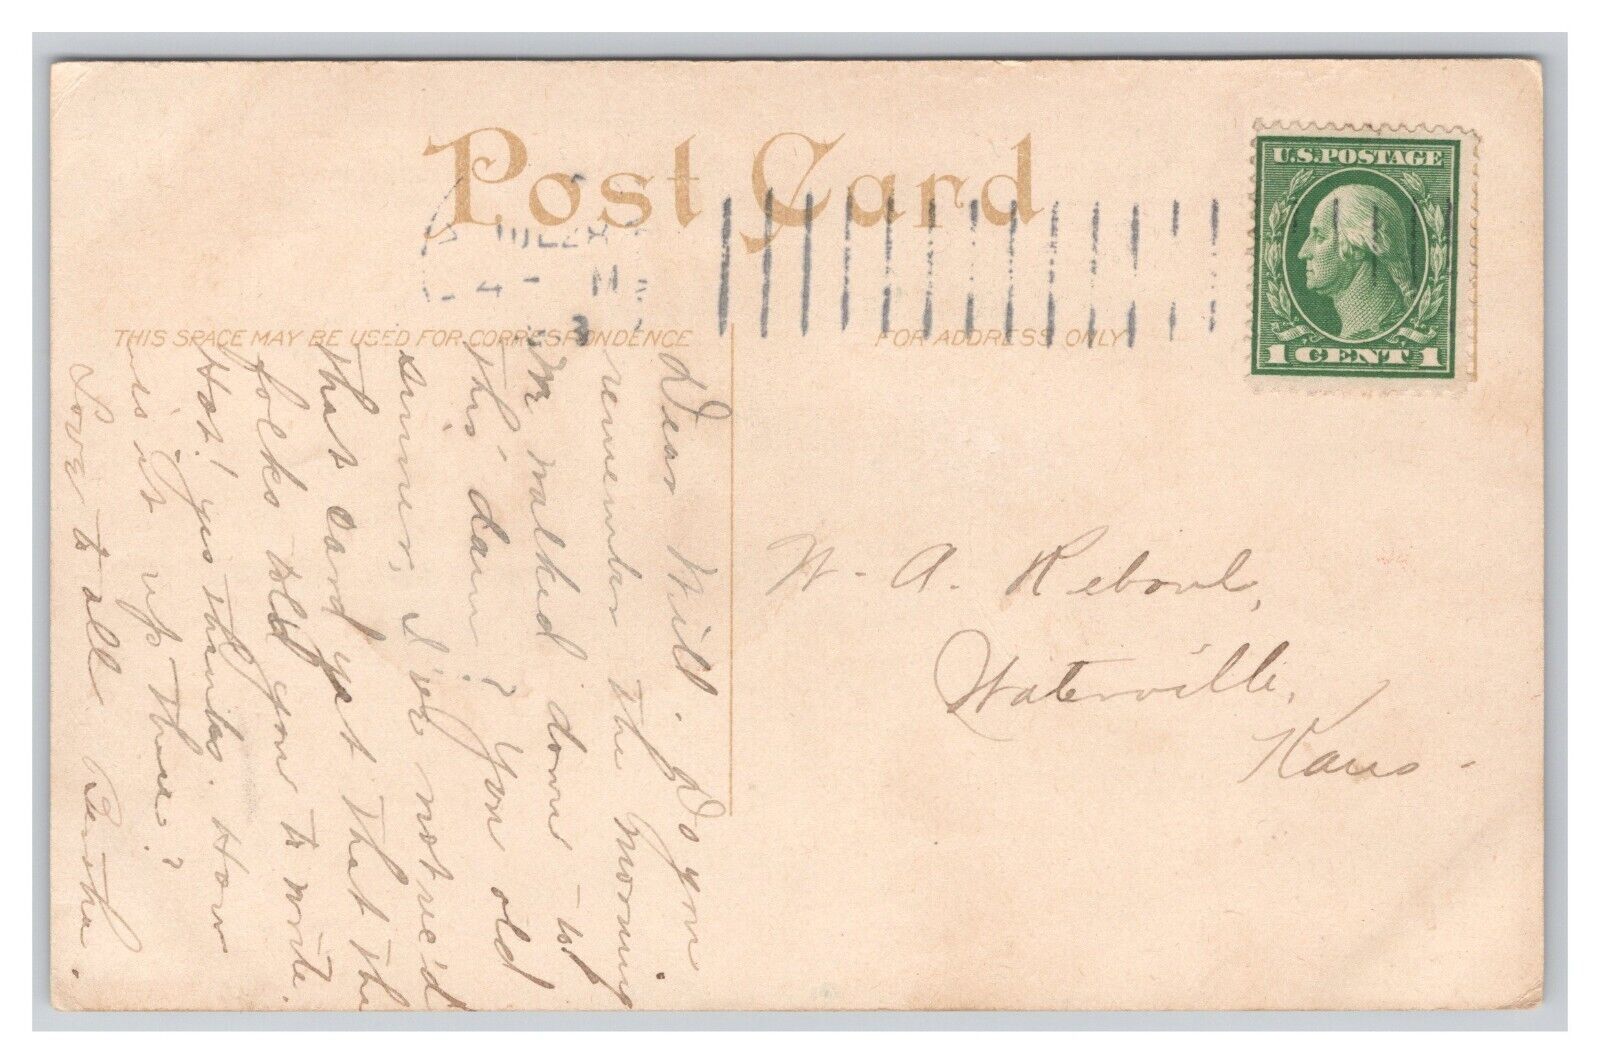 Post Card
U.S. POSTAGE
1 CENT 1
THIS SPACE MAY BE USED FOR CORRESPONDENCE
FOR ADDRESS ONLY
Dear Will. Do you
remember the morning
We walked down to
this dam? You old
sinner, I've not rec'd
that card yet that the
folks told you to write.
Hot! yes thanks. How
is it up there?
Love to all Bertha.
W. A. Reboul,
Waterville,
Kans.